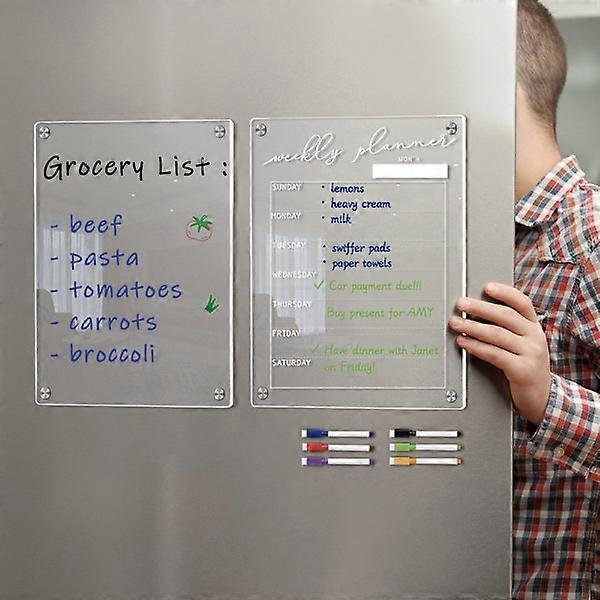 Grocery List :
- beef
- pasta
- tomatoes
- carrots
- broccoli
weekly planner
MONTH
SUNDAY
• lemons
• heavy cream
MONDAY
• milk
TUESDAY
• swiffer pads
• paper towels
WEDNESDAY
✓ Car payment due!!!
THURSDAY
Buy present for AMY
FRIDAY
✓ Have dinner with Janet
SATURDAY
on Friday!